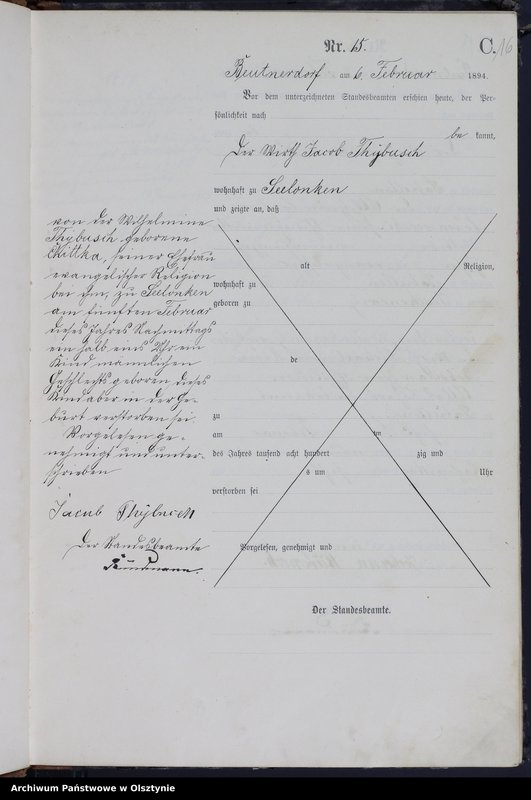 Nr. 15.
C.
16
Beutnerdorf am 6. Februar 1894.
Vor dem unterzeichneten Standesbeamten erschien heute, der Per-
sönlichkeit nach
be kannt,
Der Wirth Jacob Thybusch
wohnhaft zu Seelonken
und zeigte an, daß
von der Wilhelmine
Thybusch geborene
Kittka, seiner Ehefrau
evangelischer Religion
bei ihm, zu Seelonken
am fünften Februar
dieses Jahres Nachmittags
ein halb eins Uhr ein
Kind männlichen
Geschlechts geboren dieses
Kind aber in der Ge-
burt verstorben sei.
Vorgelesen ge-
nehmigt und unter-
schrieben
Jacub Thybusch
Der Standesbeamte
alt Religion,
wohnhaft zu
geboren zu
de
zu
am ten
des Jahres tausend acht hundert zig und
s um Uhr
verstorben sei
Vorgelesen, genehmigt und
Der Standesbeamte.
Archiwum Państwowe w Olsztynie